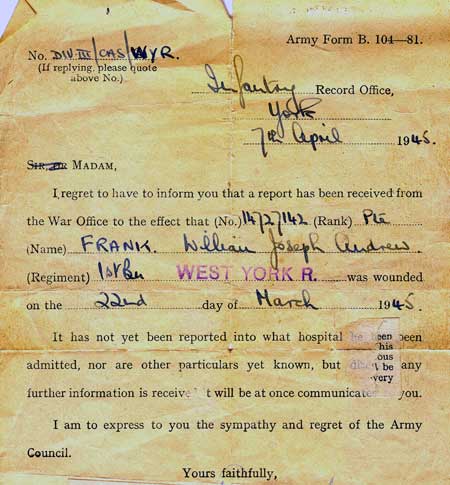 Army Form B. 104—81.
No. DIV III/CAS/WYR.
(If replying, please quote
above No.)
Infantry Record Office,
York
7th April 1945.
Sir, or Madam,
I regret to have to inform you that a report has been received from
the War Office to the effect that (No.) 14727142 (Rank) Pte
(Name) FRANK. William Joseph Andrew.
(Regiment) 1st Bn WEST YORK R. was wounded
on the 22nd day of March 1945.
It has not yet been reported into what hospital he been been
his
admitted, nor are other particulars yet known, but any
ous
t be
very
further information is receive it will be at once communicate you.
I am to express to you the sympathy and regret of the Army
Council.
Yours faithfully,